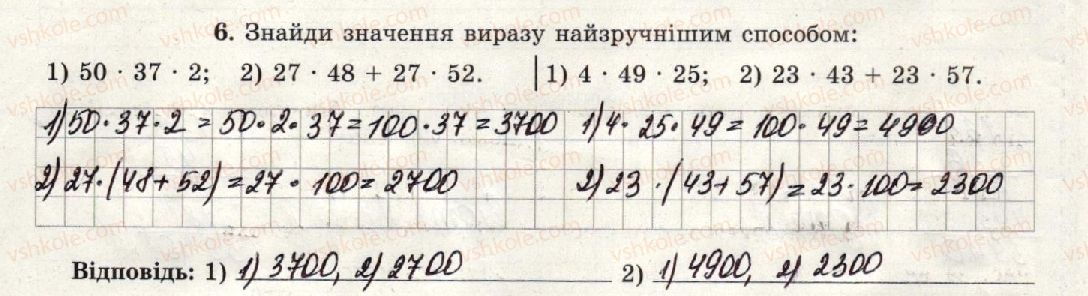 6. Знайди значення виразу найзручнішим способом:
1) 50 · 37 · 2; 2) 27 · 48 + 27 · 52. 1) 4 · 49 · 25; 2) 23 · 43 + 23 · 57.
1) 50 · 37 · 2 = 50 · 2 · 37 = 100 · 37 = 3700 1) 4 · 25 · 49 = 100 · 49 = 4900
2) 27 · (48 + 52) = 27 · 100 = 2700 2) 23 · (43 + 57) = 23 · 100 = 2300
Відповідь: 1) 1) 3700, 2) 2700 2) 1) 4900, 2) 2300
vshkole.com